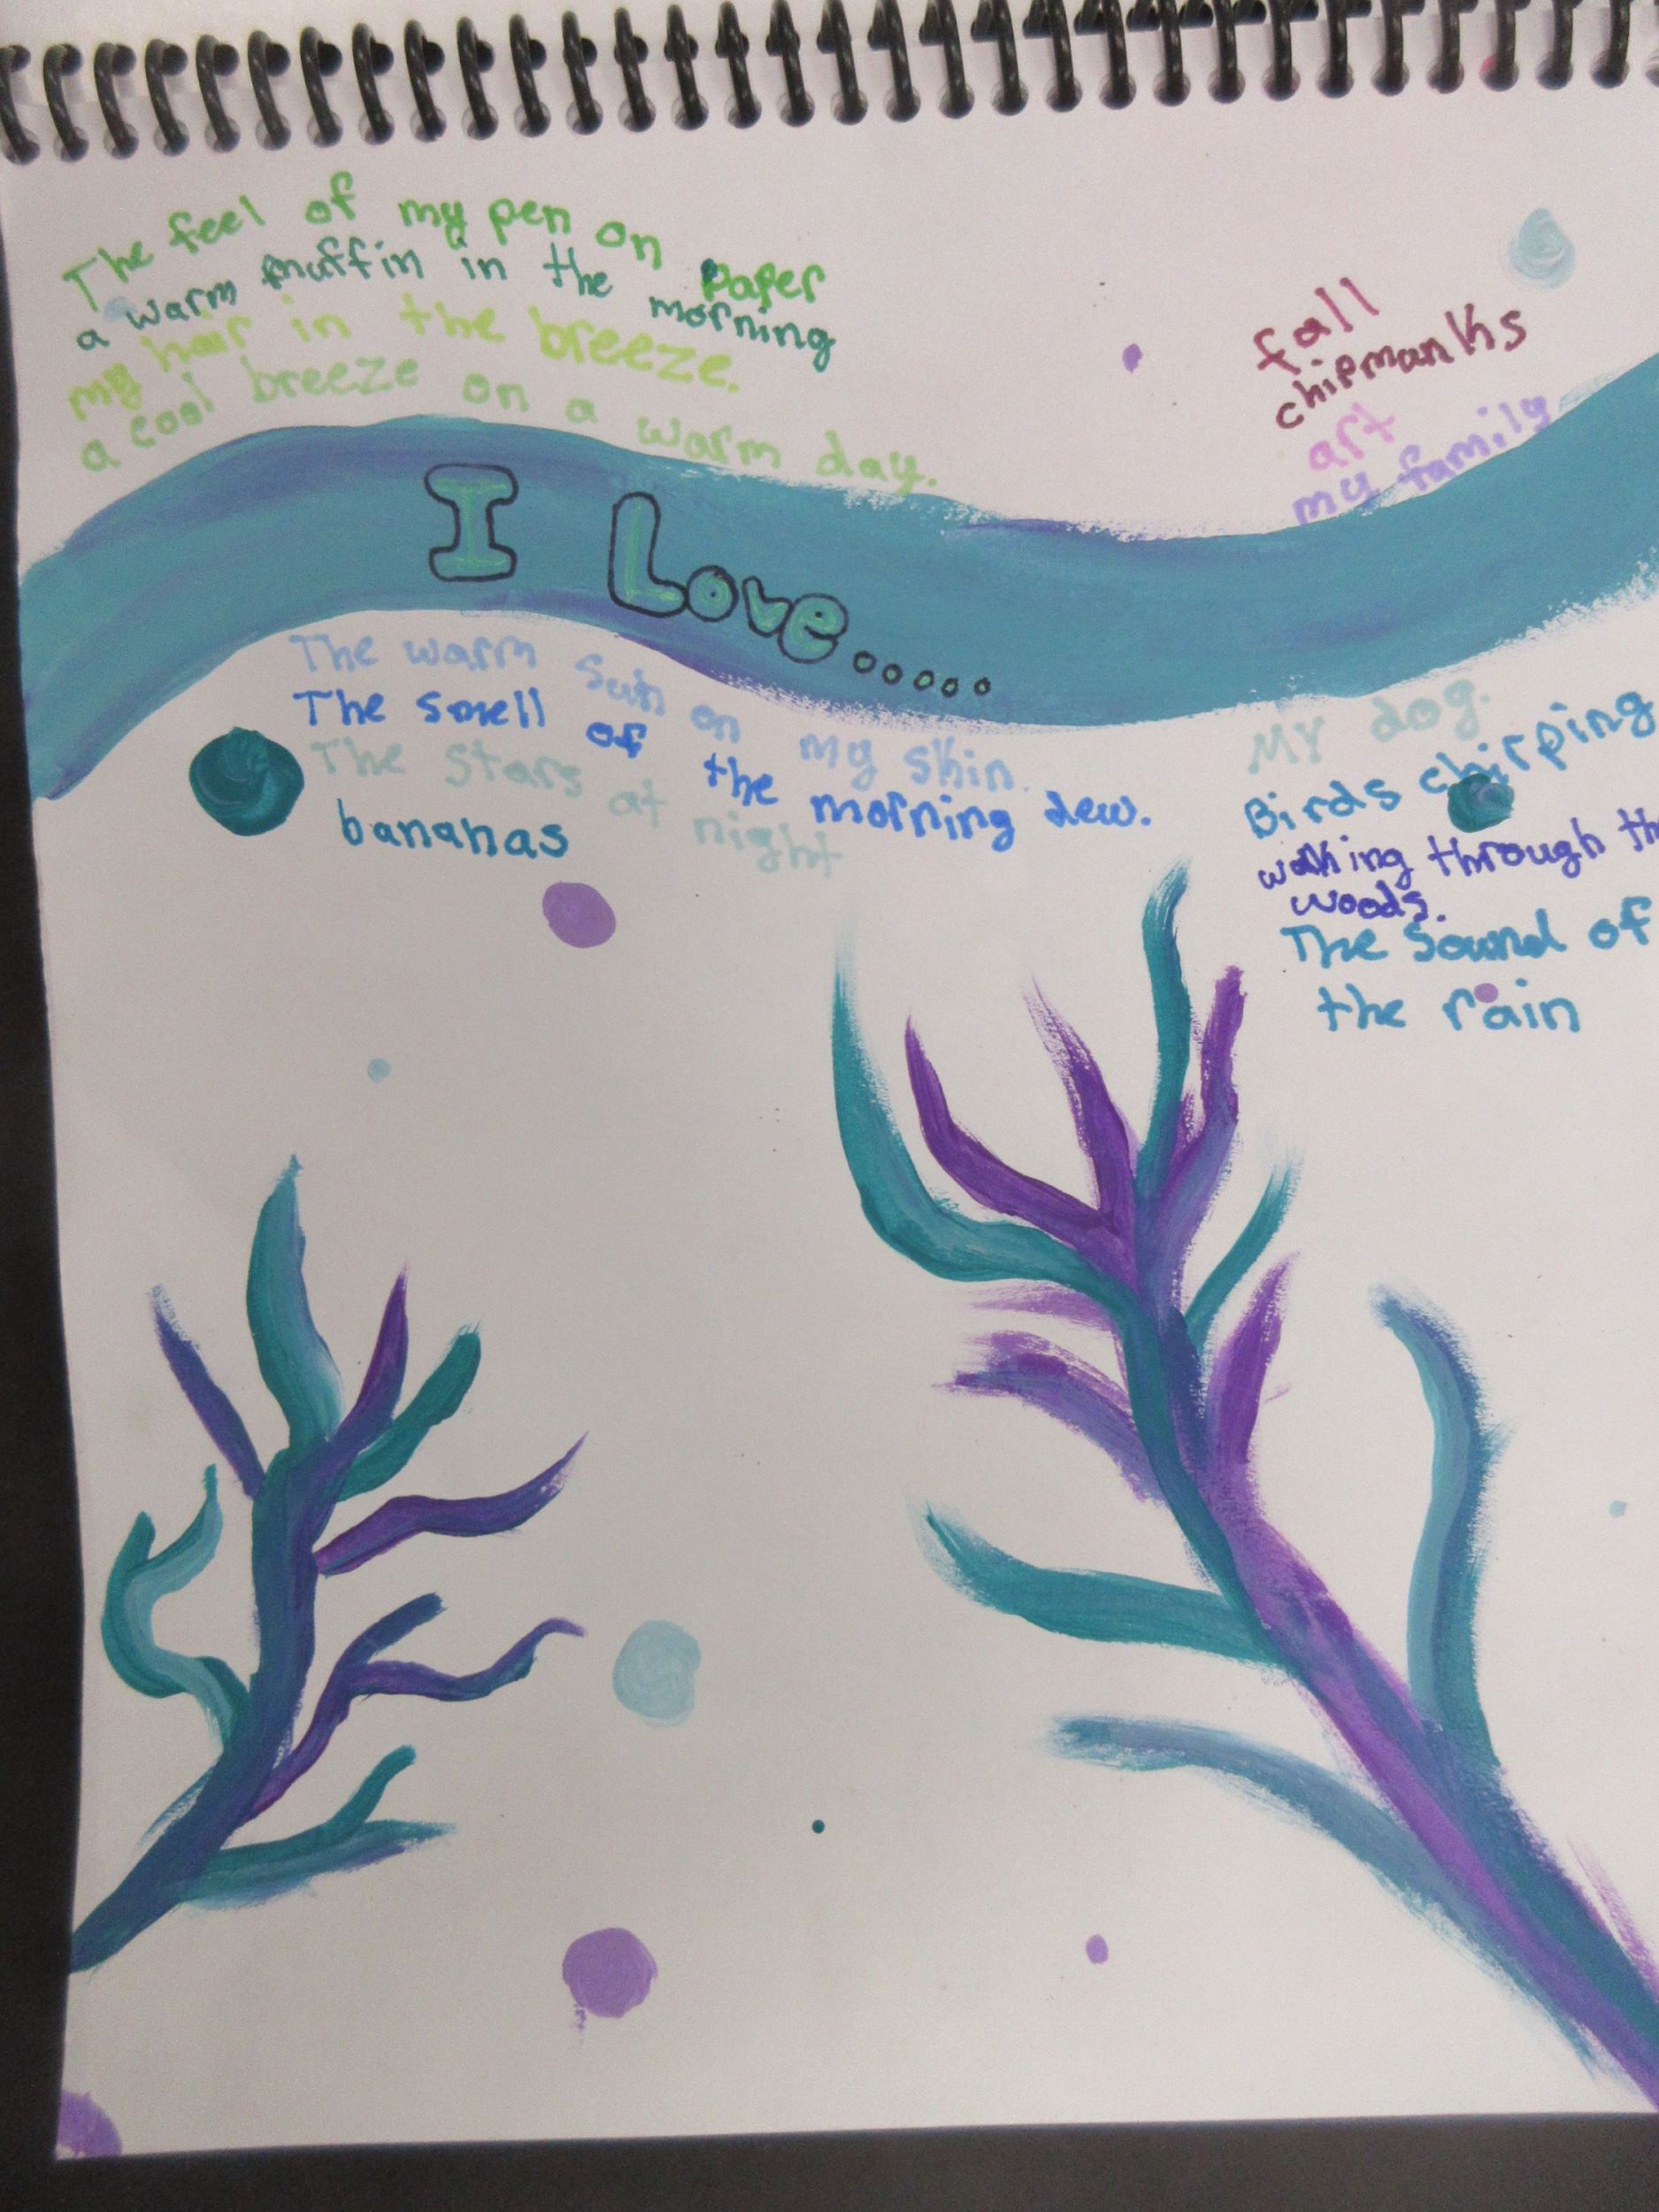 The feel of my pen on paper
a warm muffin in the morning
my hair in the breeze.
a cool breeze on a warm day.
fall
chipmanks
art
my family
I Love.....
The warm sun on my skin.
The smell of the morning dew.
The stars at night
bananas
MY dog.
Birds chirping
walking through th
woods.
The sound of
the rain